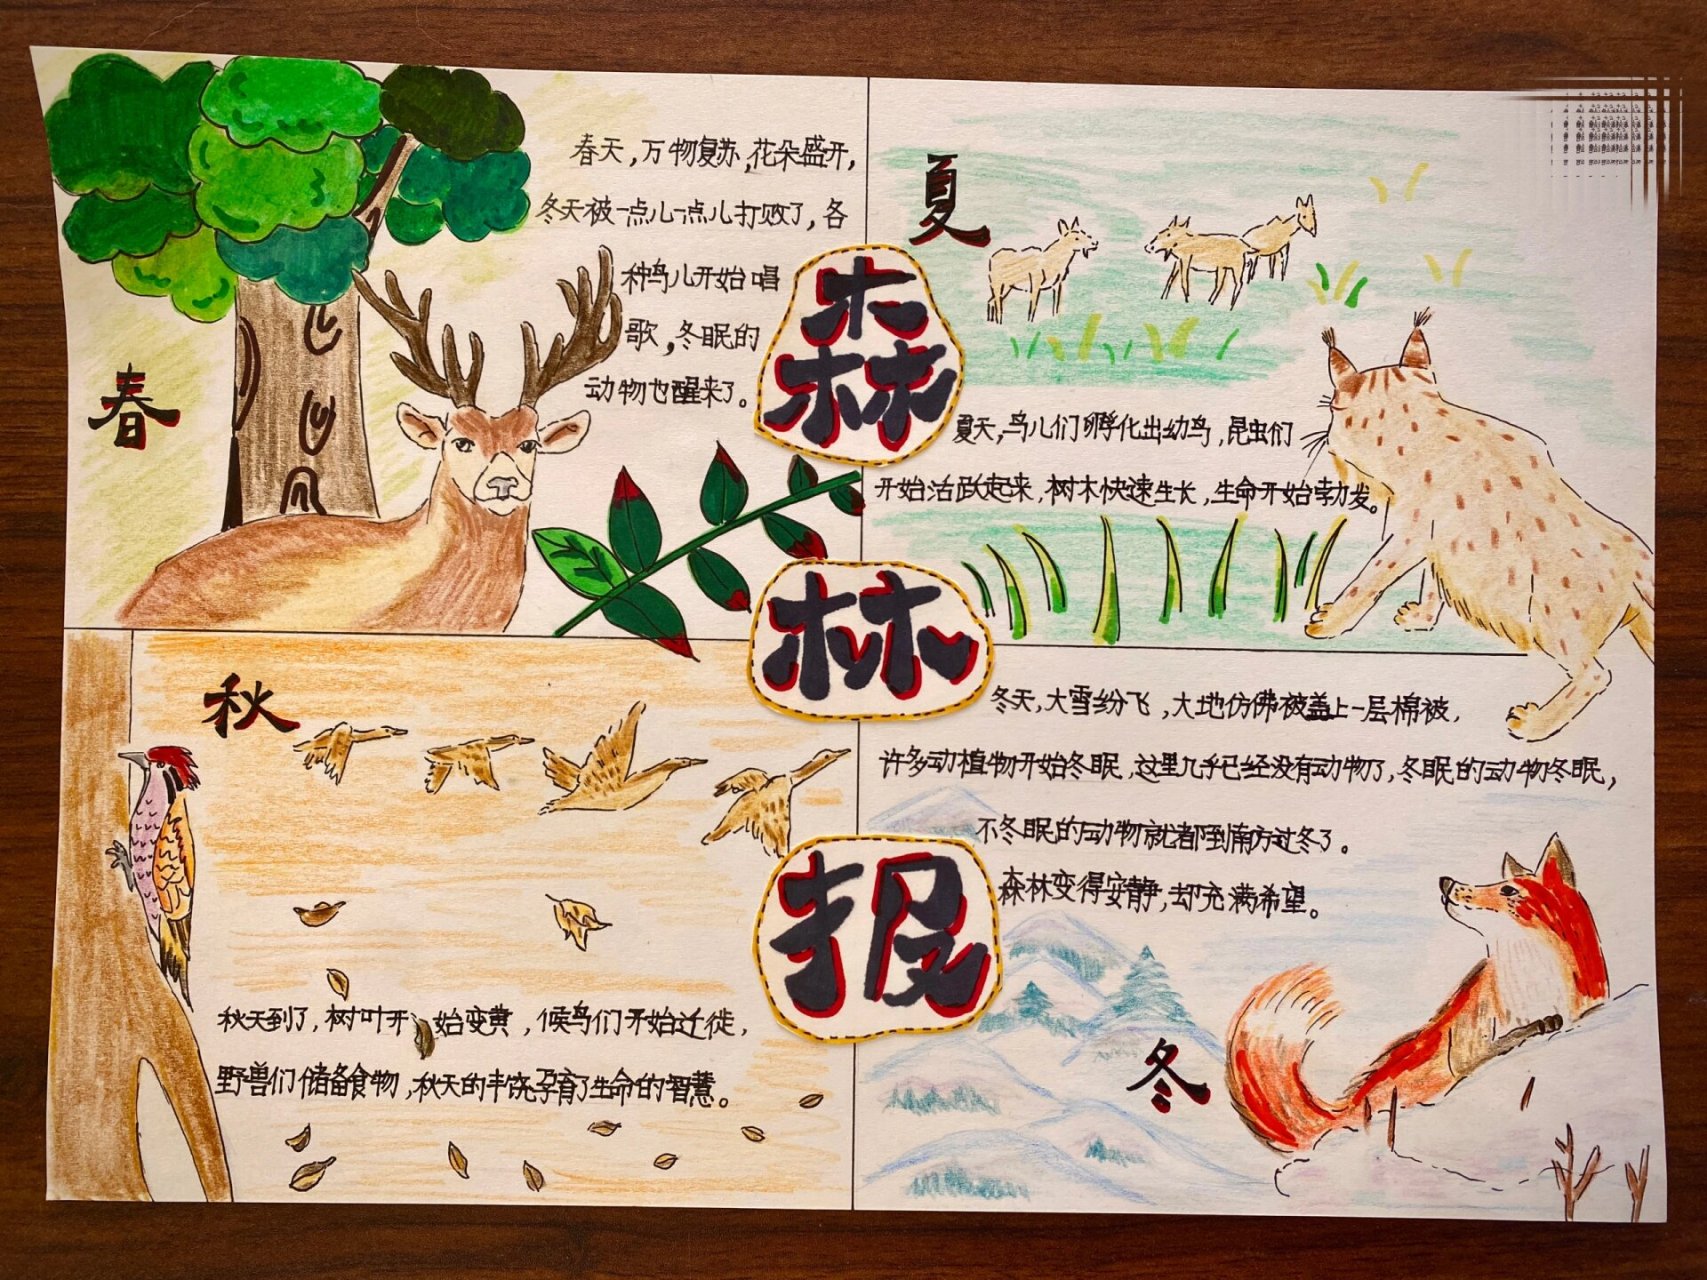 森
林
报
春
春天，万物复苏，花朵盛开，
冬天被一点儿一点儿打败了，各
种鸟儿开始唱
歌，冬眠的
动物也醒来了。
夏
夏天，鸟儿们孵化出幼鸟，昆虫们
开始活跃起来，树木快速生长，生命开始勃发。
秋
秋天到了，树叶开始变黄，候鸟们开始迁徙，
野兽们储备食物，秋天的丰饶孕育了生命的智慧。
冬天，大雪纷飞，大地仿佛被盖上一层棉被，
许多动植物开始冬眠，这里几乎已经没有动物了，冬眠的动物冬眠，
不冬眠的动物就都到南方过冬了。
森林变得安静，却充满希望。
冬